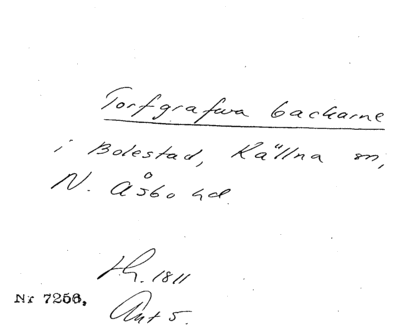 Torfgrafwa backarne
i Bolestad, Källna sn,
N. Åsbo hd.
h. 1811
Nr 7256,
Akt 5.